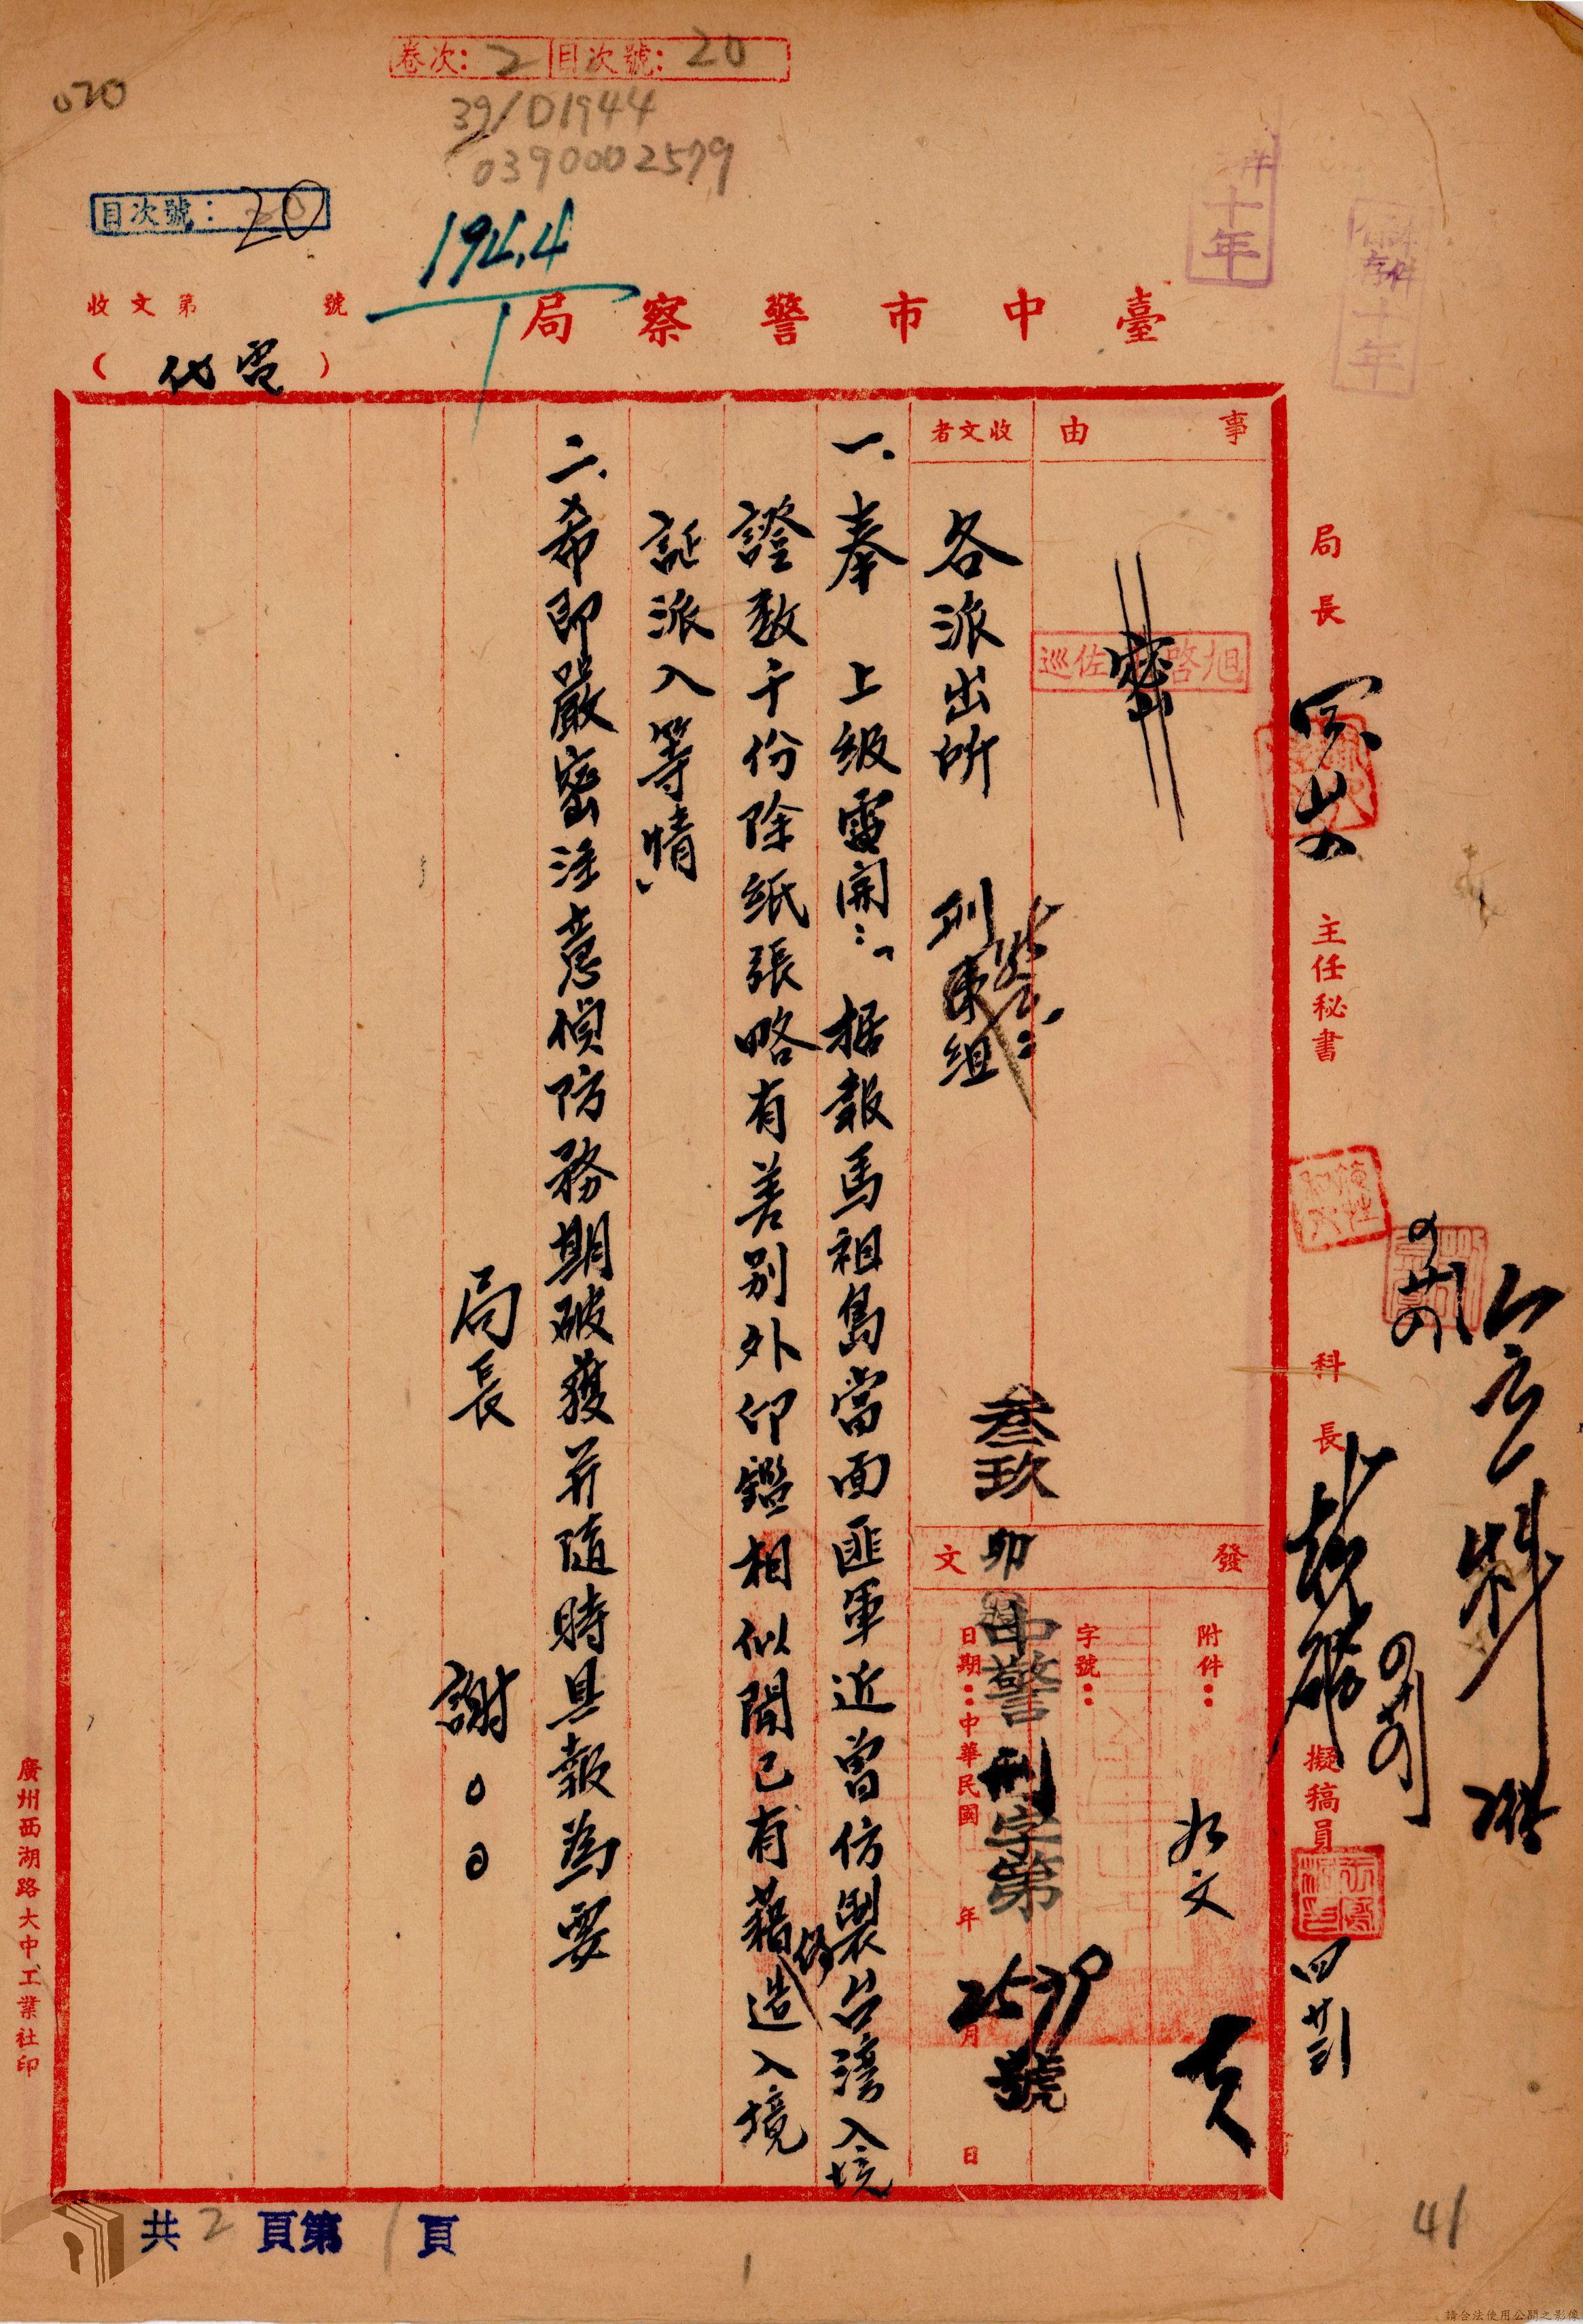 卷次：2 目次號：20
020
39/D1944
0390002579
目次號：20
1944
1
十年
十年
收文第 號
（代電）
臺中市警察局
事由
密
收文者
各派出所 刑事組
發文
附件：
如文
字號：
日期：中華民國 年 月 日
叁玖卯 中警刑字第2579號
一、奉 上級電開：「据報馬祖島當面匪軍近曾仿製台湾入境
證数千份除紙張略有差别外印鑑相似聞已有藉偽造入境
証派入等情」
二、希即嚴密注意偵防務期破獲并隨時具報為要
局長 謝○○
局長
主任秘書
科長
擬稿員
四廿三
廣州西湖路大中工業社印
共2頁第1頁
1
41
請合法使用公開之影像